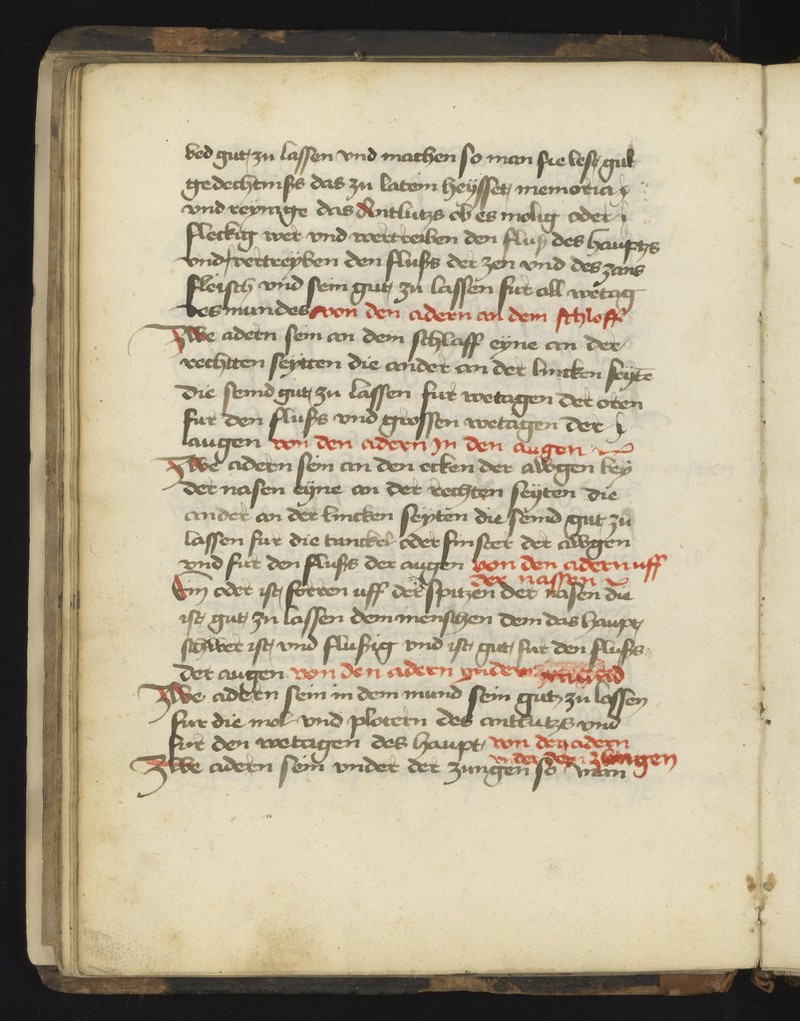 bed gut zu lassen vnd machen so man sie lest gut
gedechtniß das zu latein heysset memoria
vnd reynige das Antlutzs ob es molig oder
fleckig wer vnd wertreiben den fluß des hauptzs
vnd vertreyben den flußs der zen vnd des zans
fleisch vnd sein gut zu lassen fur all wetag
des mundes von den adern an dem schloff
Zwe adern sein an dem schlaff eyne an der
rechtten seytten die ander an der lincken seyte
die seind gut zu lassen fur wetagen der oren
fur den flußs vnd grossen wetagen der
augen von den adern In den augen
Zwe adern sein an den ecken der awgen bey
der nasen eyne an der rechten seyten die
ander an der lincken seyten die seind gut zu
lassen fur die tunckel oder finster der awgen
vnd fur den flußs der augen von den adern uff
der nassen
Ein oder ist forren uff der spitzen der nasen die
ist gut zu lassen dem menschen dem das haupt
schwer ist vnd flußig vnd ist gut fur den flußs
der augen von den adern mund
Zwe adern sein in dem mund sein gut zu lassen
fur die mol vnd plotern des antlutzs vnd
fur den wetagen des haupt von den adern
vnder der zungen
Zwe adern sein vnder der zungen so man